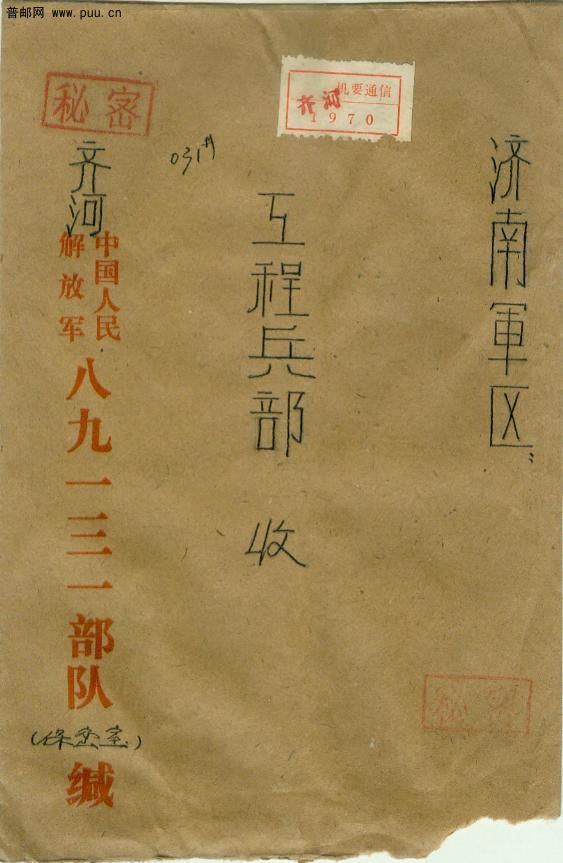 普邮网 www.puu.cn
秘密
机要通信
齐河
1970
济南軍区:
工程兵部 收
齐河
中国人民
解放军
八九一三一部队
(保密室)
缄
秘密